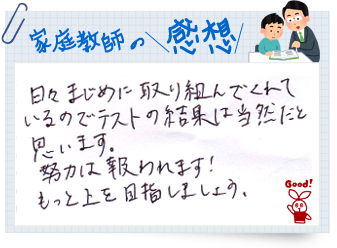 家庭教師の感想
日々まじめに取り組んでくれて
いるのでテストの結果は当然だと
思います。
努力は報われます!
もっと上を目指しましょう。
Good!